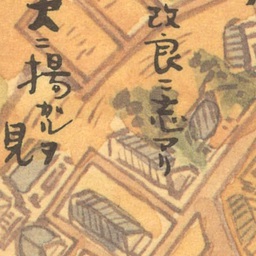 改良ニ志アリ
大ニ揚ガルヲ
見